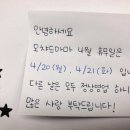 안녕하세요
모차드마마 4월 휴무일은
4/20(월), 4/21(화) 입니
다른 날은 모두 정상영업 하니
많은 사랑 부탁드립니다!